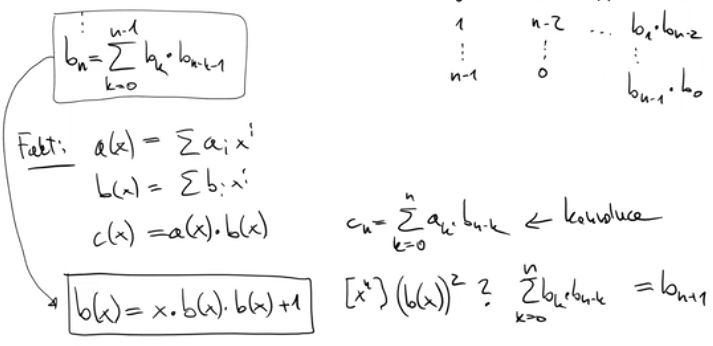 1 n-2 ... b₁·bₙ₋₂
⋮ ⋮ ⋮
n-1 0 bₙ₋₁·b₀
⋮
bₙ = ∑_{k=0}^{n-1} bₖ·bₙ₋ₖ₋₁
Fakt: a(x) = ∑ aᵢ xⁱ
b(x) = ∑ bᵢ xⁱ
c(x) = a(x)·b(x) cₙ = ∑_{k=0}^{n} aₖ·bₙ₋ₖ ← konvoluce
b(x) = x·b(x)·b(x)+1 [xⁿ] (b(x))² ? ∑_{k=0}^{n} bₖ·bₙ₋ₖ = bₙ₊₁